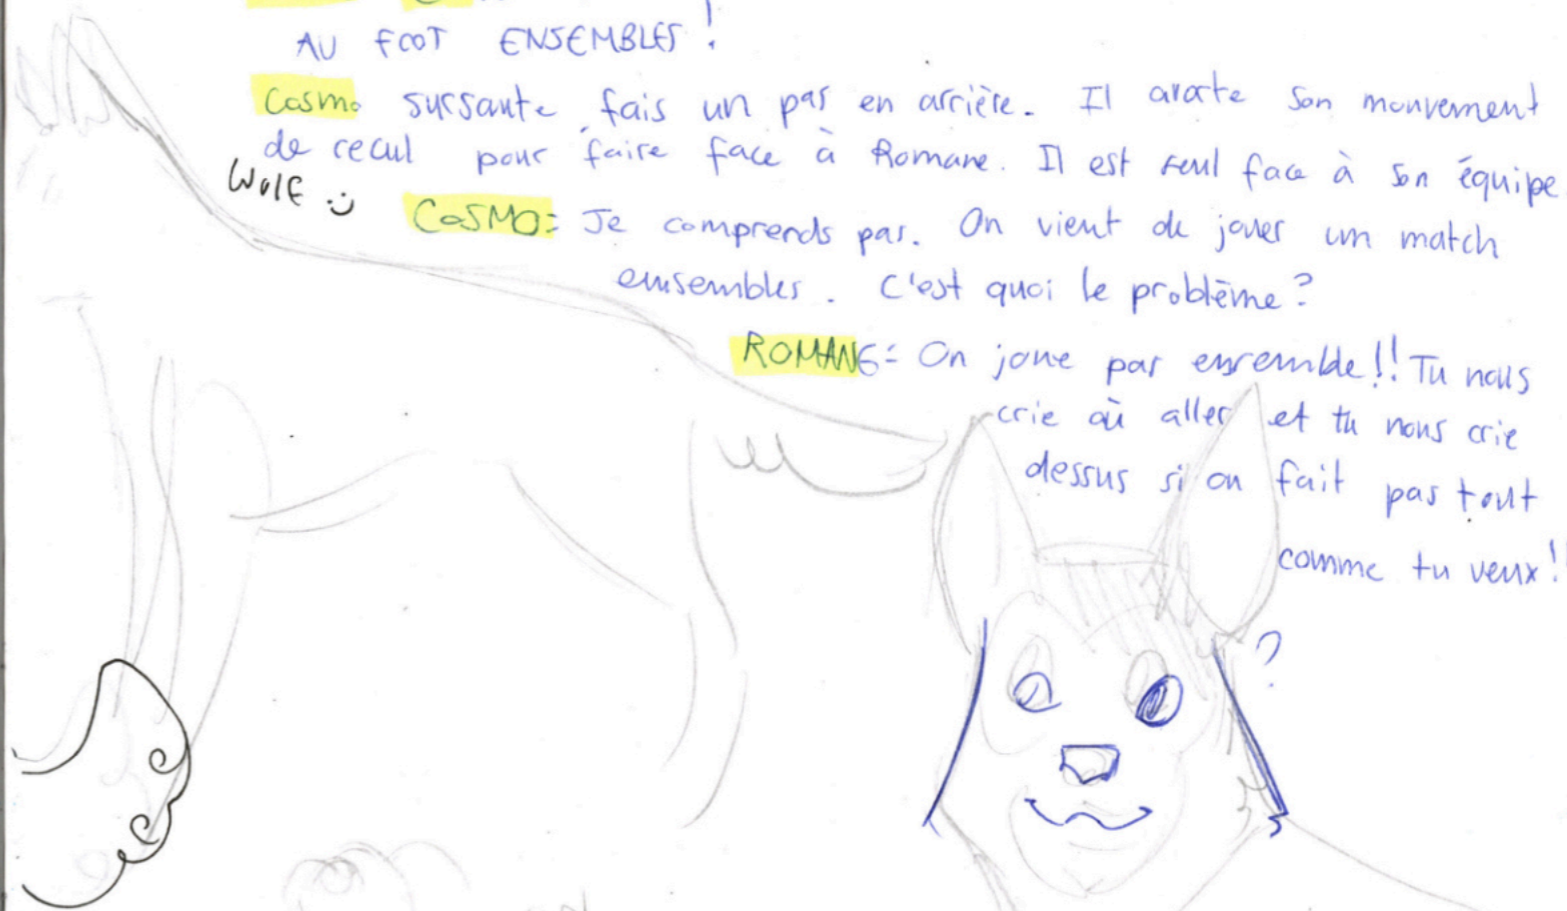 AU FOOT ENSEMBLES !
Cosmo sursaute, fais un pas en arrière. Il avorte son mouvement
de recul pour faire face à Romane. Il est seul face à son équipe.
Wolf :)
COSMO: Je comprends pas. On vient de jouer un match
emsembles. C'est quoi le problème ?
ROMANE: On joue pas ensemble !! Tu nous
crie où aller et tu nous crie
dessus si on fait pas tout
comme tu veux !!
?